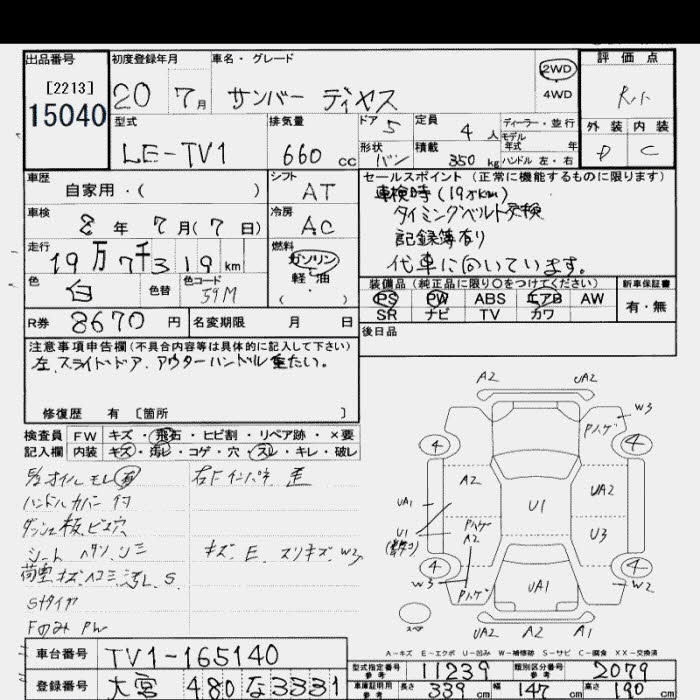 出品番号
[2213]
15040
初度登録年月
20 7月
車名・グレード
サンバー ディアス
2WD
4WD
評価点
R
外装 内装
D C
型式
LE-TV1
排気量
660 cc
ドア 5
形状 バン
定員 4 人
積載 350 kg
ディーラー・並行
モデル年式 年
ハンドル 左・右
車歴
自家用・( )
シフト
AT
車検
8年 7月(7日)
冷房
AC
走行
19万7千319km
燃料
ガソリン
軽・油
( )
色
白
色替
色コード
59M
R券 8670円
名変期限 月 日
セールスポイント (正常に機能するものに限ります)
車検時(19万km)
タイミングベルト交換
記録簿有り
代車に向いています。
装備品 (純正品に限り○をつけてください)
PS PW ABS エアB AW
SR ナビ TV カワ
新車保証書
有・無
後日品
注意事項申告欄(不具合内容等は具体的に記入して下さい)
左、スライドドア、アウターハンドル重たい。
修復歴 有 [箇所 ]
検査員 FW キズ・飛石・ヒビ割・リペア跡・×要
記入欄 内装 キズ・汚レ・コゲ・穴・スレ・キレ・破レ
オイルモレ 有
右Fインパネ 歪
ハンドルカバー付
ダッシュ板、ビス穴
シート ヘタリ、シミ
キズ、E、スリキズ、W3
荷室キズ、ヘコミ、汚レ、S
Sタイヤ
FのみPW
A2 UA2
W3
Pハゲ
4 4
A2 UA2
UA1 U1
U1 U3
Pハゲ
A2
4 4
W3 W2
UA1
Pハゲ
スペア
UA2 A2 A1
A-キズ E-エクボ U-凹み W-補修跡 S-サビ C-腐食 XX-交換済
車台番号 TV1-165140
登録番号 大宮 480 な 3331
型式指定番号 参考 11239
類別区分番号 参考 2079
車庫証明用 参考 長さ 339 cm 幅 147 cm 高さ 190 cm